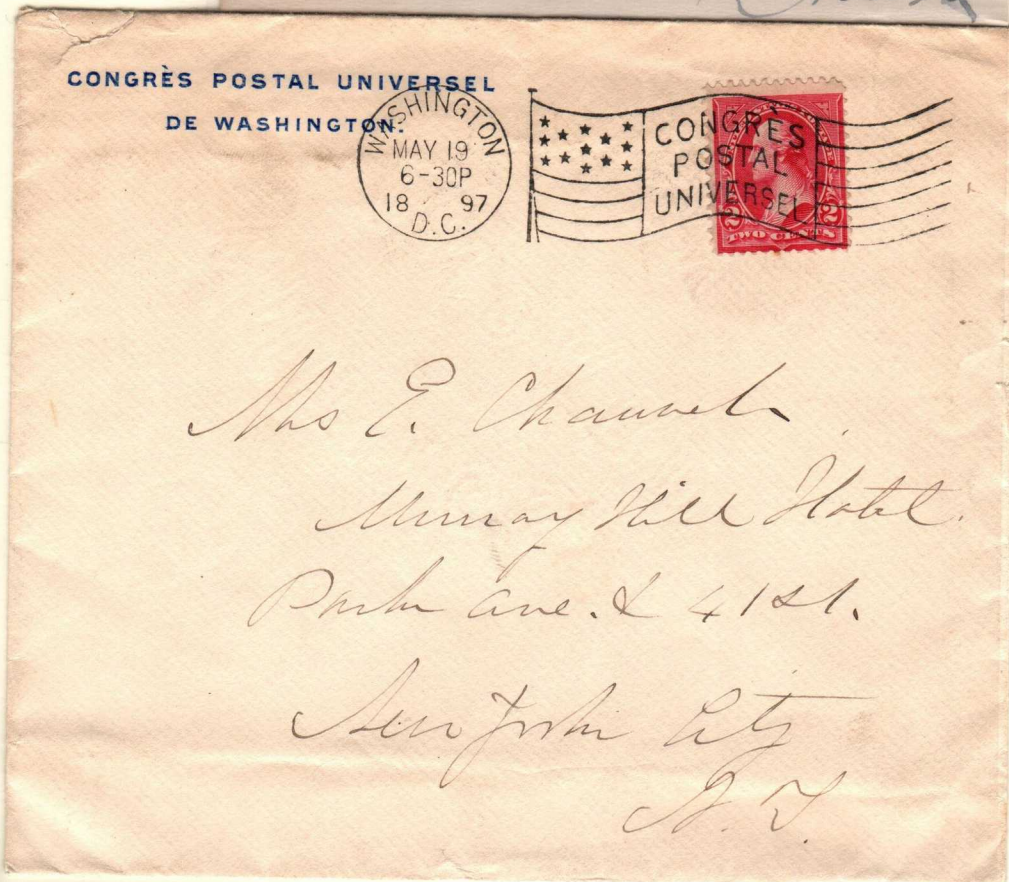 CONGRÈS POSTAL UNIVERSEL
DE WASHINGTON.
WASHINGTON
MAY 19
6-30P
18 97
D.C.
CONGRÈS
POSTAL
UNIVERSEL
2 2
TWO CENTS
Mrs E. Chauvet
Murray Hill Hotel.
Park Ave. & 41st.
New York City
N.Y.